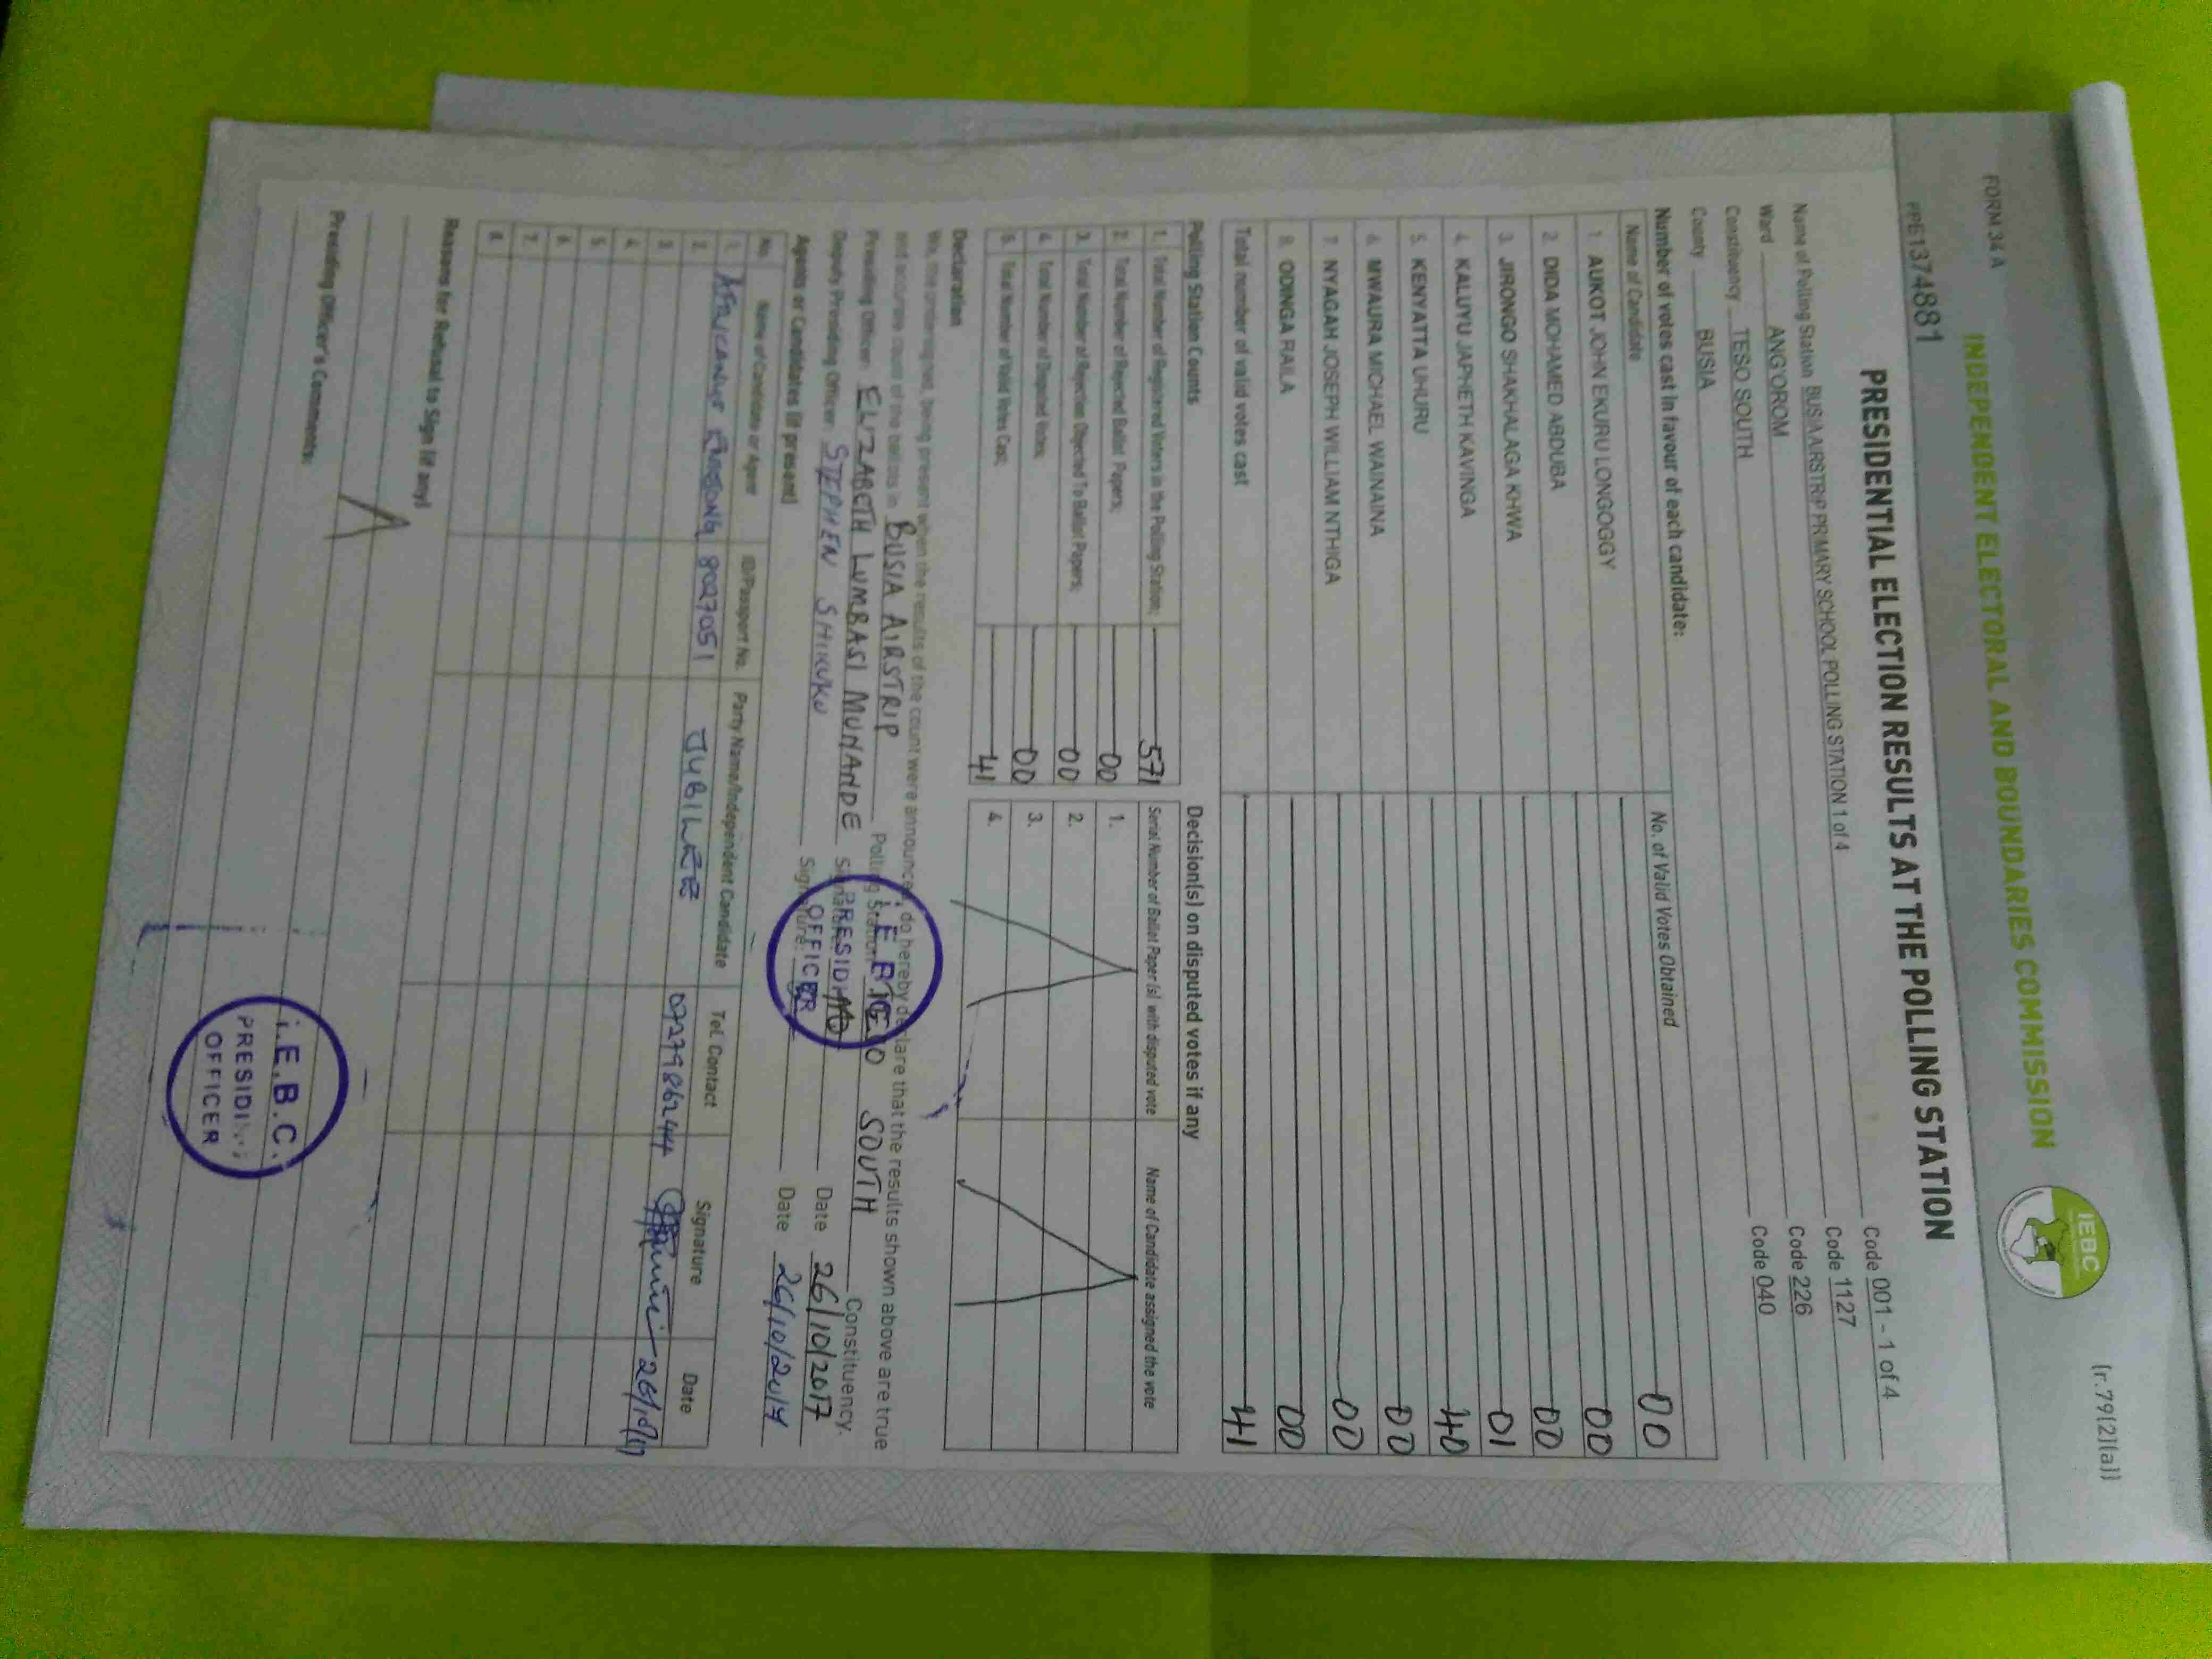 FORM 34 A
(r.79(2)(a))
INDEPENDENT ELECTORAL AND BOUNDARIES COMMISSION
IEBC
PPE1374881
PRESIDENTIAL ELECTION RESULTS AT THE POLLING STATION
Name of Polling Station BUSIA AIRSTRIP PRIMARY SCHOOL POLLING STATION 1 of 4 Code 001 - 1 of 4
Ward ANG'OROM Code 1127
Constituency TESO SOUTH Code 226
County BUSIA Code 040
Number of votes cast in favour of each candidate:
Name of Candidate No. of Valid Votes Obtained
1. AUKOT JOHN EKURU LONGOGGY 00
2. DIDA MOHAMED ABDUBA 00
3. JIRONGO SHAKHALAGA KHWA 00
4. KALUYU JAPHETH KAVINGA 01
5. KENYATTA UHURU 40
6. MWAURA MICHAEL WAINAINA 00
7. NYAGAH JOSEPH WILLIAM NTHIGA 00
8. ODINGA RAILA 00
Total number of valid votes cast 41
Polling Station Counts
1. Total Number of Registered Voters in the Polling Station; 571
2. Total Number of Rejected Ballot Papers; 00
3. Total Number of Rejection Objected To Ballot Papers; 00
4. Total Number of Disputed Votes; 00
5. Total Number of Valid Votes Cast; 41
Decision(s) on disputed votes if any
Serial Number of Ballot Paper (s) with disputed vote Name of Candidate assigned the vote
1.
2.
3.
4.
Declaration
We, the undersigned, being present when the results of the count were announced, do hereby declare that the results shown above are true
and accurate count of the ballots in BUSIA AIRSTRIP Polling Station TESO SOUTH Constituency.
Presiding Officer: ELIZABETH LUMBASI MUNANDE Signature: Date 26/10/2017
Deputy Presiding Officer: STEPHEN SHIKUKU Signature: Date 26/10/2017
I.E.B.C.
PRESIDING
OFFICER
Agents or Candidates (if present)
No. Name of Candidate or Agent ID/Passport No. Party Name/Independent Candidate Tel. Contact Signature Date
1. AFRICANUS 8027051 JUBILEE 0727986244 26/10/17
2.
3.
4.
5.
6.
7.
8.
Reasons for Refusal to Sign (if any)
Presiding Officer's Comments:
I.E.B.C.
PRESIDING
OFFICER